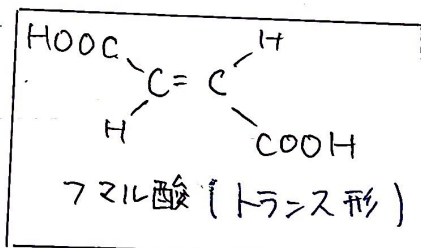 HOOC H
C=C
H COOH
フマル酸 (トランス形)